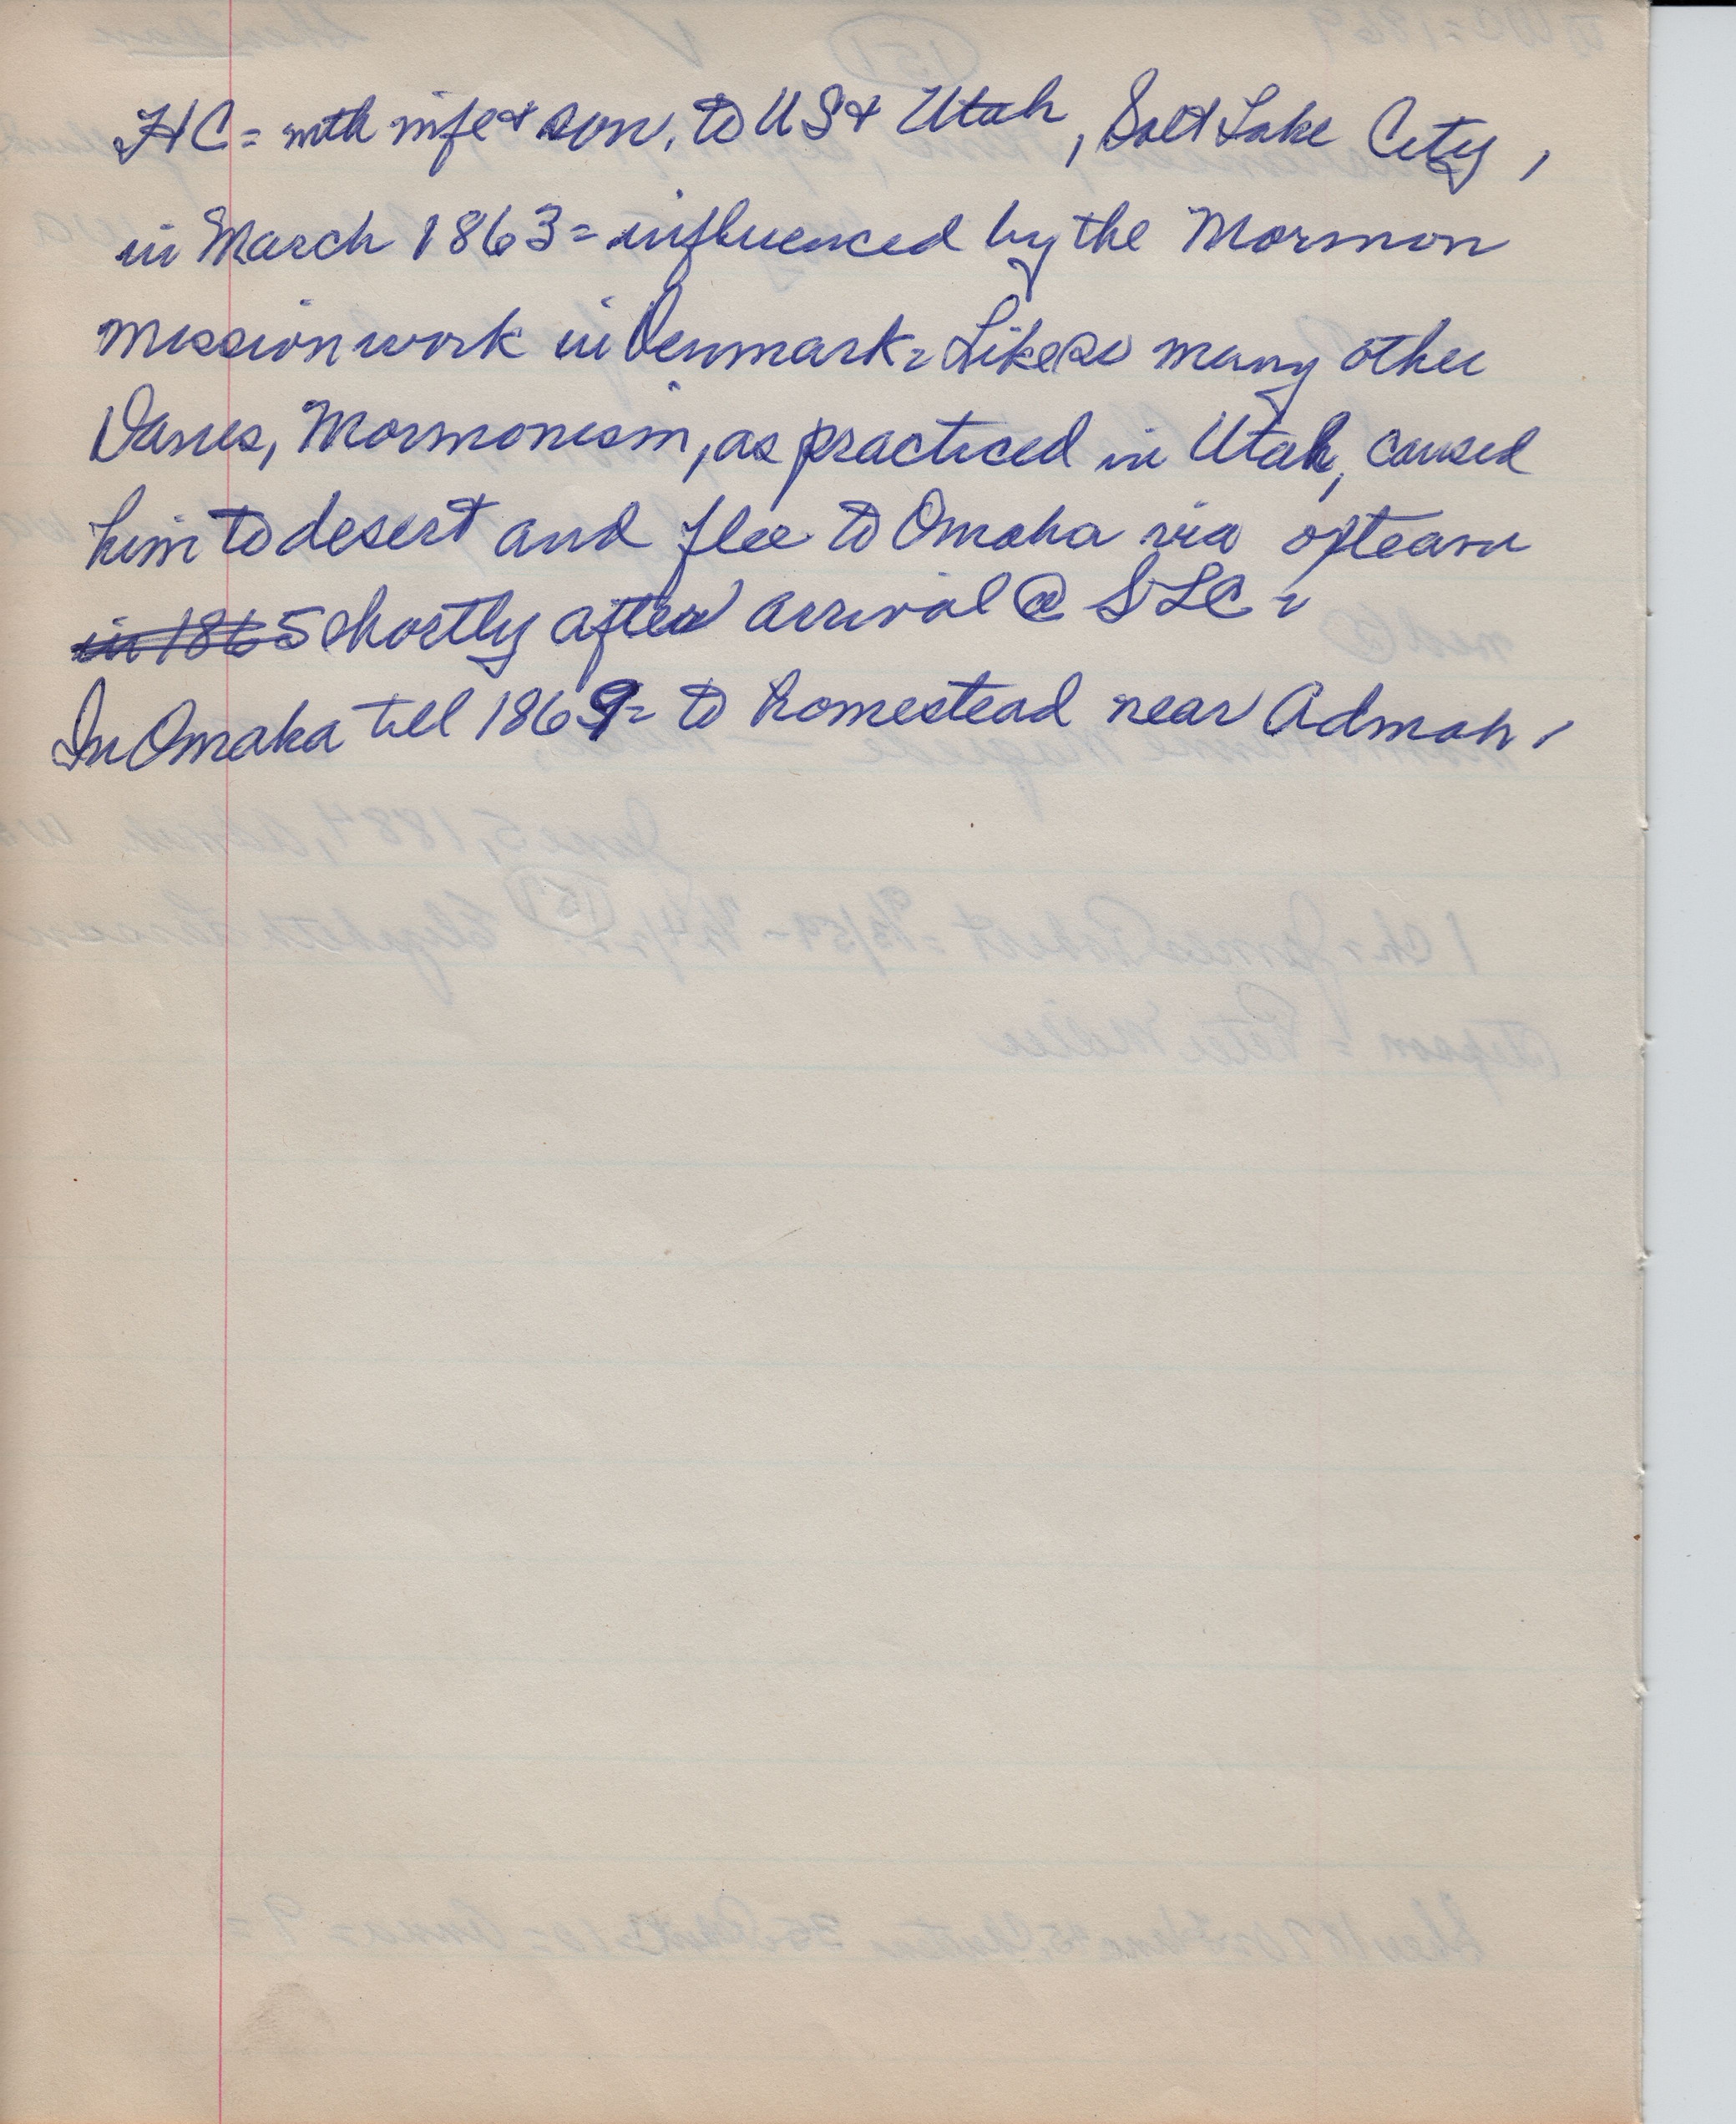 HC = with wife & son, to US & Utah, Salt Lake City,
in March 1863 = influenced by the Mormon
mission work in Denmark = Like so many other
Danes, Mormonism, as practiced in Utah, caused
him to desert and flee to Omaha via oxteam
in 1865 shortly after arrival @ SLC =
In Omaha till 1869 = to homestead near Admah,